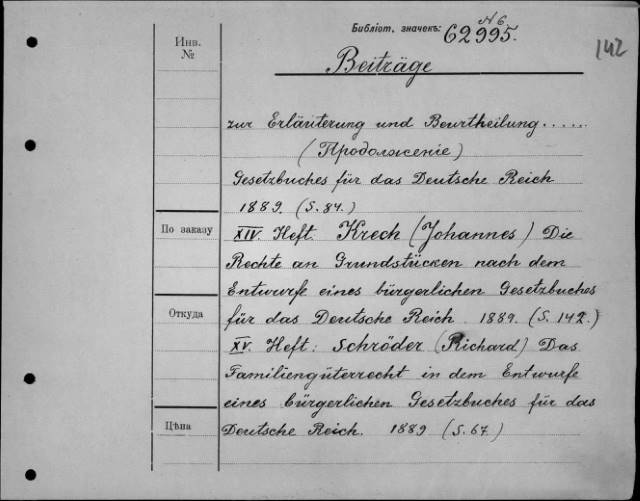 Библіот. значекъ: N 6.
62995.
142
Инв.
№
Beiträge
zur Erläuterung und Beurtheilung......
(Продолженіе)
Gesetzbuches für das Deutsche Reich
1889. (S. 84.)
По заказу
XIV. Heft. Krech (Johannes) Die
Rechte an Grundstücken nach dem
Entwurfe eines bürgerlichen Gesetzbuches
Откуда
für das Deutsche Reich 1889. (S. 142.)
XV. Heft: Schröder (Richard) Das
Familiengüterrecht in dem Entwurfe
eines bürgerlichen Gesetzbuches für das
Цѣна
Deutsche Reich. 1889 (S. 67.)